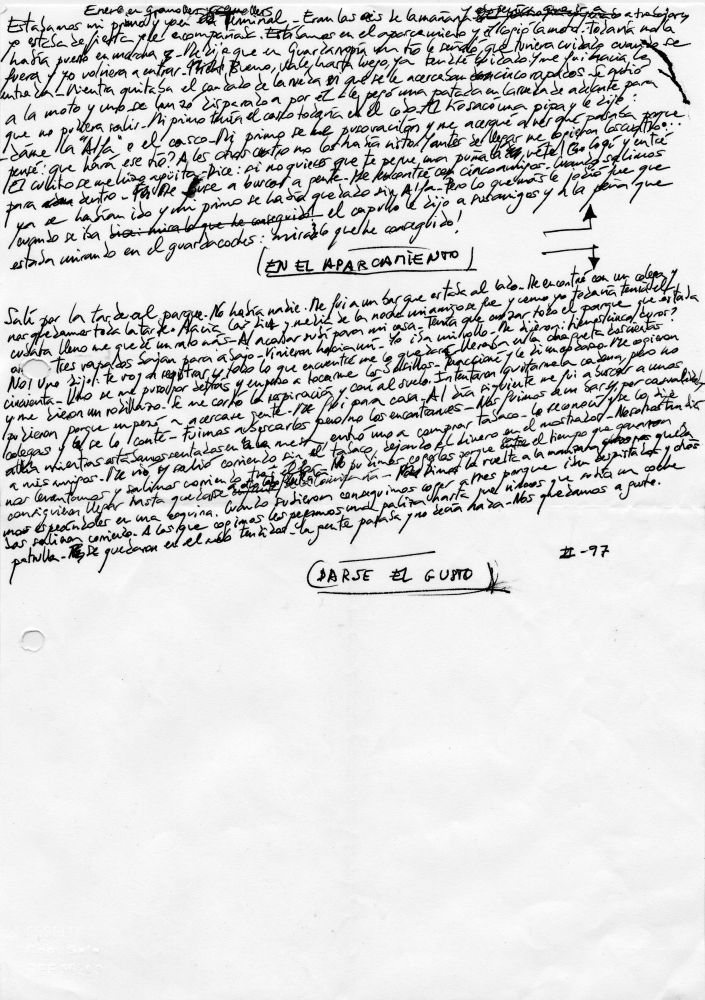 Enero en Granollers
Estábamos mi primo y yo en terminal. Eran las seis de la mañana y a trabajar y
yo estaba de fiesta y le acompañaba. Estábamos en el aparcamiento y él cogió la moto. Todavía no la
había puesto en marcha y me dijo que en Guardarropía un tío le señaló, que tuviera cuidado cuando se
fuera y yo volviera a entrar. Bueno, vale, hasta luego, ya tendré cuidado y me fui hacia la
entrada. Mientra quitaba el candado de la rueda se le acercaban cinco rapados. Se quitó
a la moto y uno se lanzó disparado a por él le pegó una patada en la rueda de adelante para
que no pudiera salir. Mi primo tenía el casco todavía en el codo. El sacó una pipa y le dijo:
Dame la "Alfa" o el casco. Mi primo se puso y me acerqué a ver que pasaba porque
pensé: que hará ese tío? A los otros cuatro no los había visto antes de llegar me cogieron los cuatro...
El cullito se me hizo agüita. Dice: si no quieres que te pegue una puñala, vete! Cogí y entré
para dentro. Fui a buscar a gente. Me encontré con cinco amigos. Cuando salimos
ya se habían ido y mi primo se había quedado sin Alfa. Pero lo que más le jodió fue que
cuando se iba el capullo le dijo a sus amigos y a la peña que
estaba mirando en el guardacoches: mirar lo que he conseguido!
EN EL APARCAMIENTO
Salí por la tarde al parque. No había nadie. Me fui a un bar que estaba al lado. Me encontré con un colega y
nos quedamos toda la tarde. Hacia las diez y media de la noche mi amigo se fue y como yo todavía tenía el
cubata lleno me quedé un rato más. Al acabar me fui para mi casa. Tenía que cruzar todo el parque que estaba
tres rapados bajan para abajo. Vinieron hacia mí. Yo iba a mi rollo. Me dijeron: tienes cinco duros?
No! Uno dijo: te voy a registrar y todo lo que encuentre me lo quedaré. Llevaba en la chaqueta doscientas
cincuenta. Uno se me puso por detrás y empezó a tocarme los bolsillos. Reaccioné y le di un codazo. Me cogieron
y me dieron un rodillazo. Se me cortó la respiración y caí al suelo. Intentaron quitarme la cadena, pero no
pudieron porque empezó a acercarse gente. Me fui para casa. Al día siguiente me fui a buscar a unos
colegas y se lo conté. Fuimos a buscarlos pero no los encontramos. Nos fuimos a un bar y por casualidad
mientras estábamos sentados en la mesa, entró uno a comprar tabaco. Lo reconocí y se lo dije
a mis amigos. Me vio y salió corriendo sin el tabaco, dejando el dinero en el mostrador. Nosotros también
nos levantamos y salimos corriendo tras él. No pudimos cogerlos porque el tiempo que ganaron
consiguieron llegar hasta Dimos la vuelta a la manzana quedan
unos escondidos en una esquina. Cuando pudieron conseguimos coger a tres porque iban despistados y otros
dos salieron corriendo. A los que cogimos les pegamos una paliza hasta que vimos que venía un coche
patrulla. Se quedaron en el suelo tendidos. La gente pasaba y no decía nada. Nos quedamos a gusto.
II-97
DARSE EL GUSTO